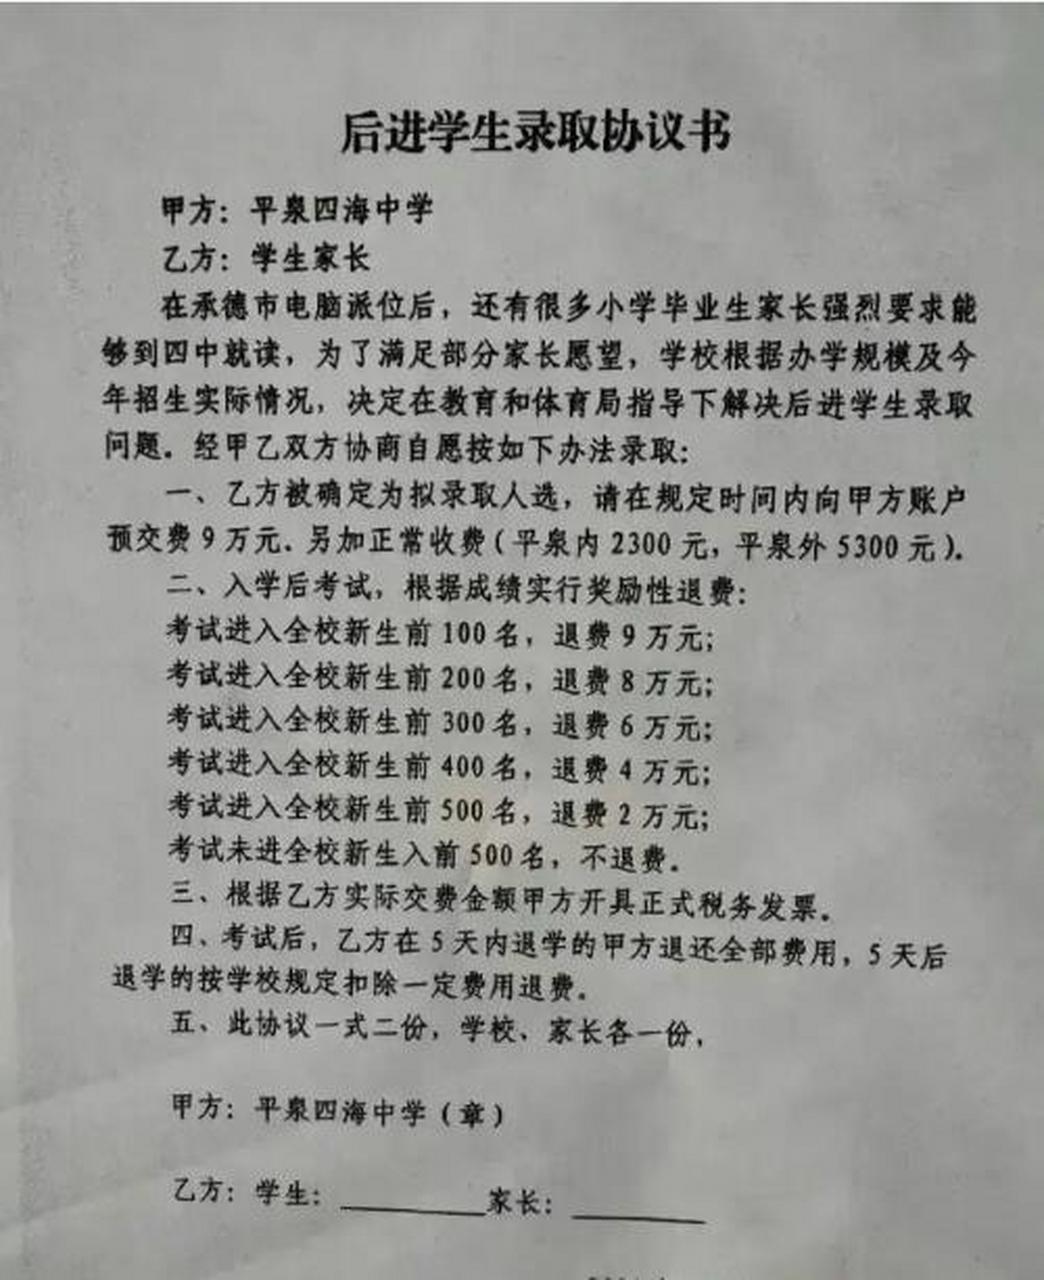 后进学生录取协议书
甲方：平泉四海中学
乙方：学生家长
在承德市电脑派位后，还有很多小学毕业生家长强烈要求能
够到四中就读，为了满足部分家长愿望，学校根据办学规模及今
年招生实际情况，决定在教育和体育局指导下解决后进学生录取
问题。经甲乙双方协商自愿按如下办法录取：
一、乙方被确定为拟录取人选，请在规定时间内向甲方账户
预交费9万元．另加正常收费（平泉内2300元，平泉外5300元）．
二、入学后考试，根据成绩实行奖励性退费：
考试进入全校新生前100名，退费9万元；
考试进入全校新生前200名，退费8万元；
考试进入全校新生前300名，退费6万元；
考试进入全校新生前400名，退费4万元；
考试进入全校新生前500名，退费2万元；
考试未进全校新生入前500名，不退费．
三、根据乙方实际交费金额甲方开具正式税务发票．
四、考试后，乙方在5天内退学的甲方退还全部费用，5天后
退学的按学校规定扣除一定费用退费．
五、此协议一式二份，学校、家长各一份，
甲方：平泉四海中学（章）
乙方：学生：________家长：________